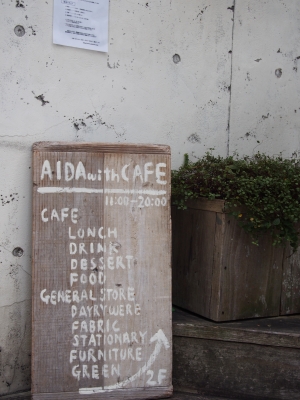 AIDA with CAFE
11:00-20:00
CAFE
LUNCH
DRINK
DESSERT
FOOD
GENERAL STORE
DAYRYWERE
FABRIC
STATIONARY
FURNITURE
GREEN
2F